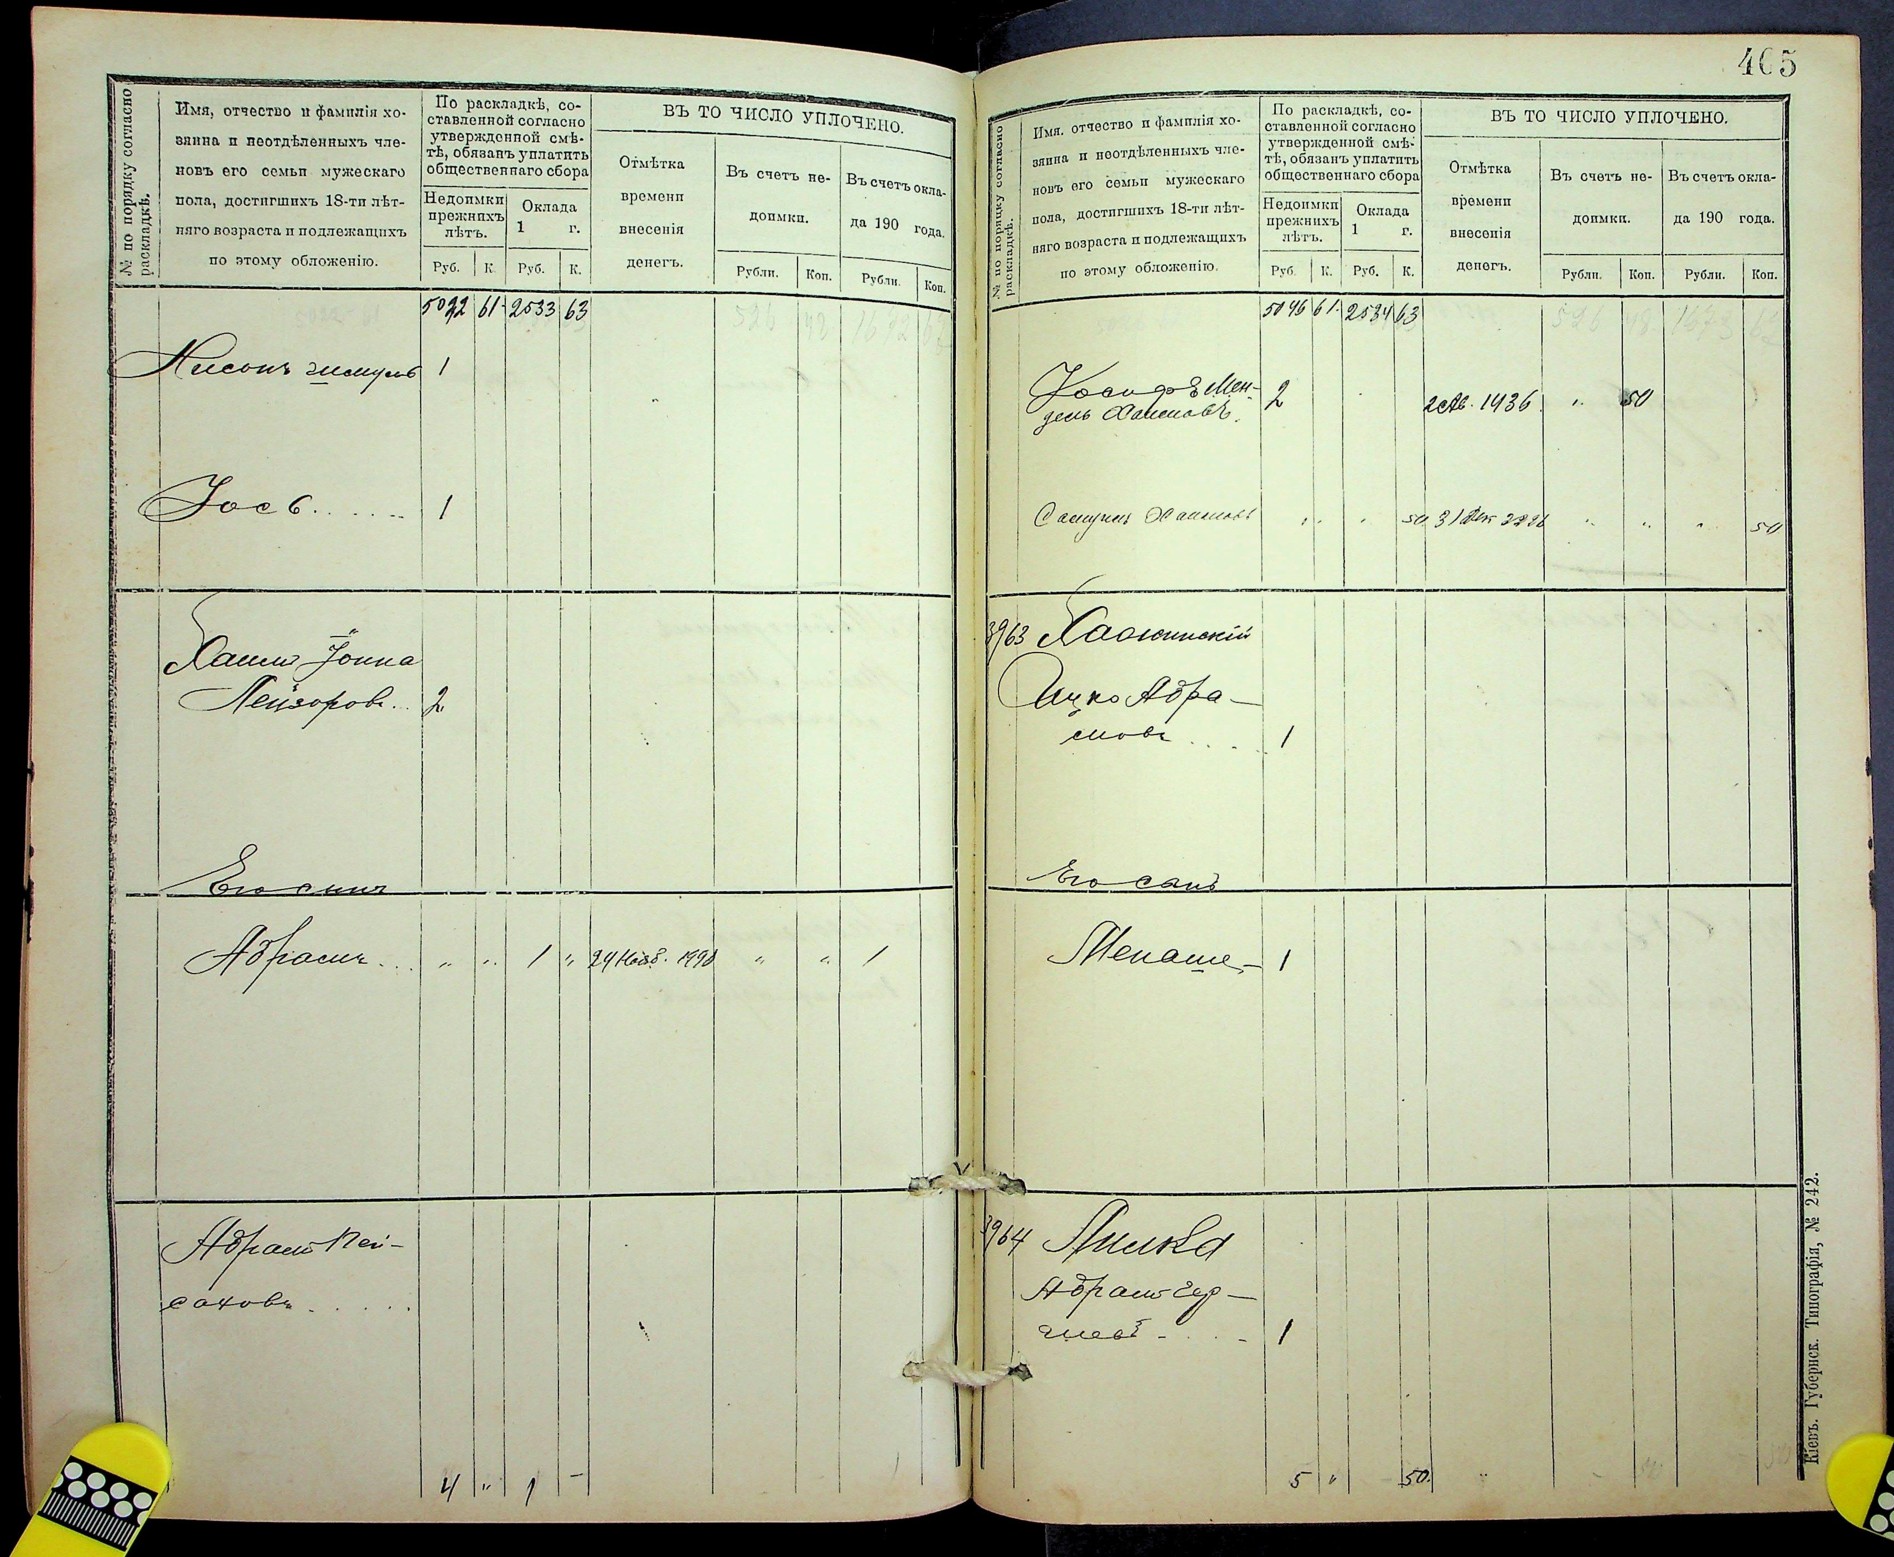 № по порядку согласно
раскладкѣ.
Имя, отчество и фамилія хо-
зяина и неотдѣленныхъ чле-
новъ его семьи мужескаго
пола, достигшихъ 18-ти лѣт-
няго возраста и подлежащихъ
по этому обложенію.
По раскладкѣ, со-
ставленной согласно
утвержденной смѣ-
тѣ, обязанъ уплатить
общественнаго сбора
Недоимки
прежнихъ
лѣтъ.
Оклада
1 г.
Руб. К. Руб. К.
ВЪ ТО ЧИСЛО УПЛОЧЕНО.
Отмѣтка
времени
внесенія
денегъ.
Въ счетъ не-
доимки.
Въ счетъ окла-
да 190 года.
Рубли. Коп. Рубли. Коп.
61 2533 63
Нисонъ 1
Іось 1
Хаимъ Іонна
Лейзоровъ 2
Его сынъ
Абрамъ „ „ 1 „ 24 Нояб. „ „ 1
Абрамъ Пей-
саховъ
4 „ 1 -
465
№ по порядку согласно
раскладкѣ.
Имя, отчество и фамилія хо-
зяина и неотдѣленныхъ чле-
новъ его семьи мужескаго
пола, достигшихъ 18-ти лѣт-
няго возраста и подлежащихъ
по этому обложенію.
По раскладкѣ, со-
ставленной согласно
утвержденной смѣ-
тѣ, обязанъ уплатить
общественнаго сбора
Недоимки
прежнихъ
лѣтъ.
Оклада
1 г.
Руб. К. Руб. К.
ВЪ ТО ЧИСЛО УПЛОЧЕНО.
Отмѣтка
времени
внесенія
денегъ.
Въ счетъ не-
доимки.
Въ счетъ окла-
да 190 года.
Рубли. Коп. Рубли. Коп.
5046 61 2534 63
Іосифъ Мен-
дель Хаимовъ. 2 1436 „ 50
Самуилъ Хаимовъ „ „ 50 31 Дек „ „ „ 50
3963
Ицко Абра-
мовъ 1
Его сынъ
Менаше 1
3964
Абрамъ Гер-
шевъ 1
5 „ - 50
Кіевъ. Губернск. Типографія, № 242.